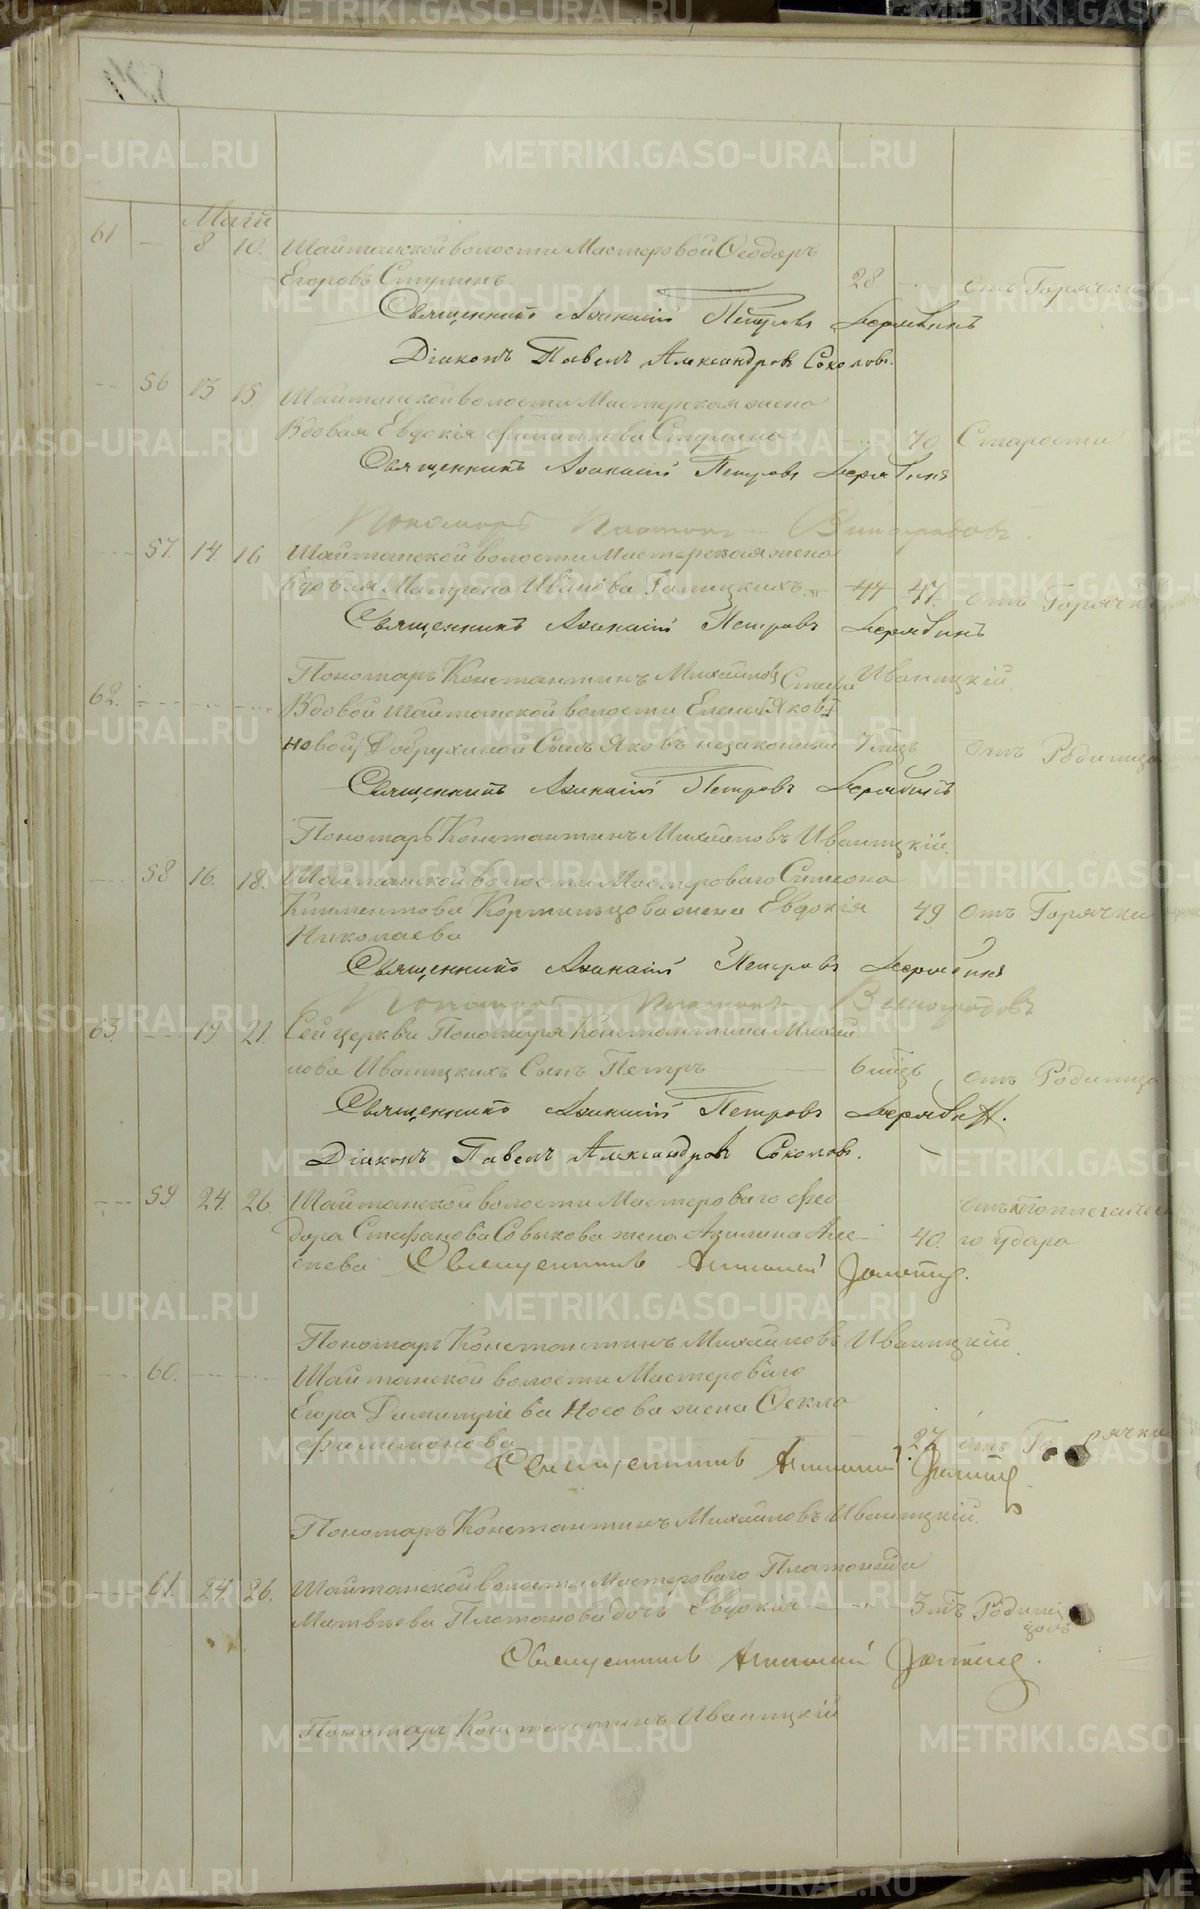 Маій
61 — 8 10. Шайтанской волости Мастеровой Ѳеодоръ
Егоровъ Ступинъ 28. — отъ Горячки
Священникъ Аѳанасій Петровъ Дерябинъ
Діаконъ Павелъ Александровъ Соколовъ.
— 56 13 15 Шайтанской волости Мастерская жена
Вдовая Евдокія Филиппова Ступина — 70 Старости
Священникъ Аѳанасій Петровъ Дерябинъ
Пономарь Платонъ Виноградовъ.
— 57. 14 16 Шайтанской волости Мастерская жена
Вдовая Матрона Иванова Галицкихъ 44 47. отъ Горячки
Священникъ Аѳанасій Петровъ Дерябинъ
Пономарь Константинъ Михайловъ Иваницкій.
62. — Вдовой Шайтанской волости Елены Яковл
новой Добрухиной Сынъ Яковъ незаконный 7 мцъ отъ Родимца
Священникъ Аѳанасій Петровъ Дерябинъ
Пономарь Константинъ Михайловъ Иваницкій.
— 58 16. 18. Шайтанской волости Мастероваго Симеона
Климентова Кормильцова жена Евдокія 49 отъ Горячки
Николаева
Священникъ Аѳанасій Петровъ Дерябинъ
Пономарь Платонъ Виноградовъ
63. — 19 21. Сей церкви Пономаря Константина Михай
лова Иваницкихъ Сынъ Петръ — 6 мцъ отъ Родимца
Священникъ Аѳанасій Петровъ Дерябин.
Діаконъ Павелъ Александровъ Соколовъ.
— 59 24. 26. Шайтанской волости Мастероваго Фео
дора Стефанова Совыкова жена Акилина Але- 40. отъ Апоплегическа
го удара
ева Священникъ
Пономарь Константинъ Михайловъ Иваницкій.
— 60. — Шайтанской волости Мастероваго
Егора Димитріева Носова жена Ѳекла
Филимонова 27. отъ Горячки
Священникъ
Пономарь Константинъ Михайловъ Иваницкій.
— 61. 24. 26. Шайтанской волости Мастероваго Платонида
Матвѣева Платонова дочь Евдокія — 3 мцъ Родим
цомъ
Священникъ
Пономарь Константинъ Иваницкій
METRIKI.GASO-URAL.RU